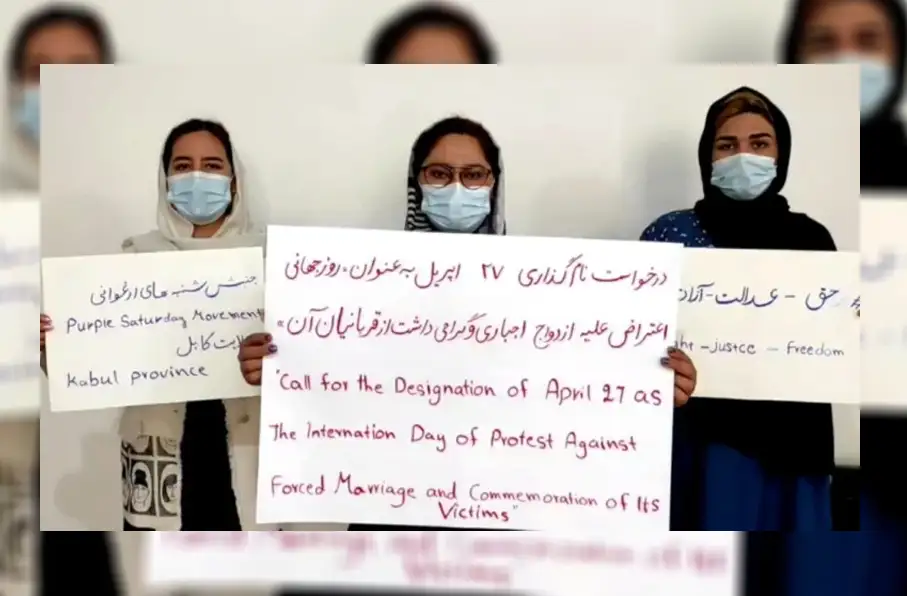 جنبش شنبه های ارغوانی
Purple Saturday Movement
ولایت کابل
Kabul province
درخواست نام گذاری ۲۷ اپریل به عنوان «روز جهانی
اعتراض علیه ازدواج اجباری و گرامی داشت از قربانیان آن»
"Call for the Designation of April 27 as
The Internation Day of Protest Against
Forced Marriage and Commemoration of Its
Victims"
حق - عدالت - آزاد
- justce - Freedom